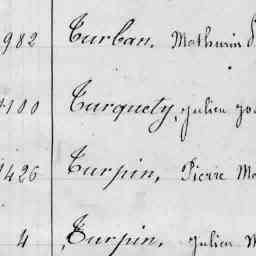 982 Turban, Mathurin
1100 Turquety, Julien
1426 Turpin, Pierre
4 Turpin, Julien